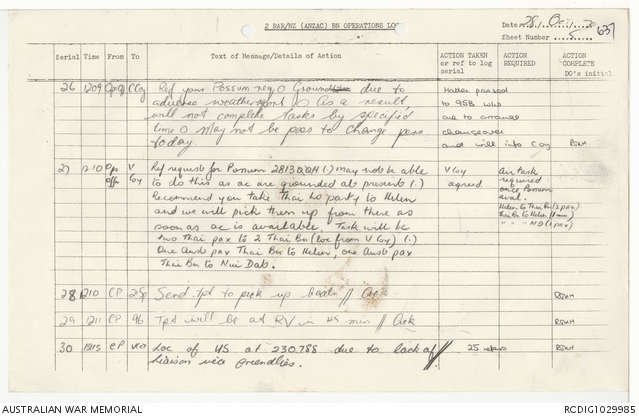 2 RAR/NZ (ANZAC) BN OPERATIONS LOG
Date 28 Oct
Sheet Number 5
637
Serial Time From To Text of Message/Details of Action ACTION TAKEN or ref to log serial ACTION REQUIRED ACTION COMPLETE DO's initial
26 1209 C Coy Ref your Possum req O Ground due to
adverse weather
as a result,
will not complete tasks by specified
time O May not be poss to change pers
today
Matter passed
to 95B who
are to arrange
changeover
and will info C Coy
27 1210 Ops Offr V Coy Ref requests for Possum 281300H (.) may not be able
to do this as ac are grounded at present (.)
Recommend you take Thai LO party to Helen
and we will pick them up from there as
soon as ac is available. Task will be
two Thai pax to 2 Thai Bn (loc from V Coy) (.)
One Aust pax Thai Bn to Helen, one Aust pax
Thai Bn to Nui Dat.
V Coy
agreed
Air Task
required
once Possum
avail.
Helen to Thai Bn (2 pax)
Thai Bn to Helen (1 pax)
" " " ND (1 pax)
28 1210 CP Send tpt to pick up // Ack
29 1211 CP 96 Tpt will be at RV in 45 min // Ack
30 1215 CP Loc of US at 230788 due to lack of
liaison vice friendlies.
AUSTRALIAN WAR MEMORIAL
RCDIG1029985